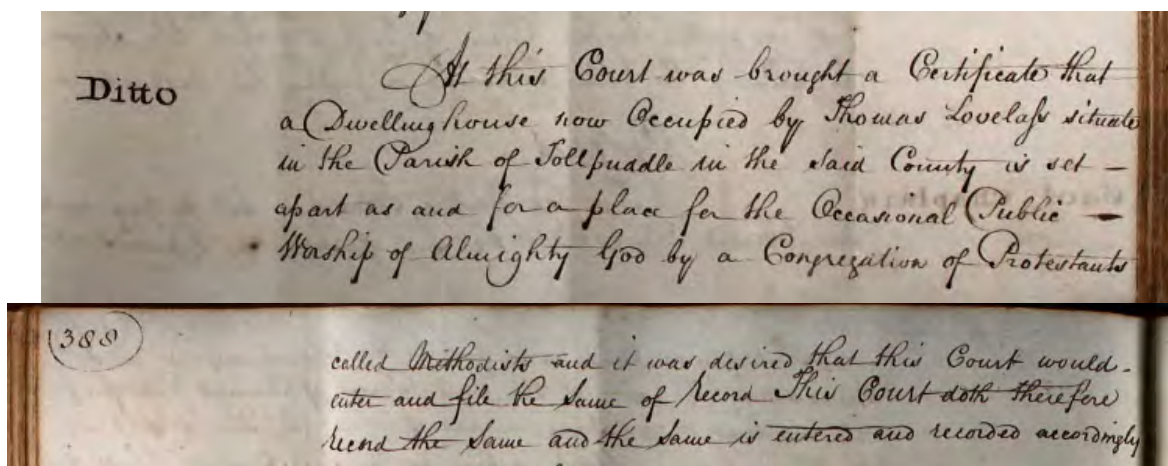 Ditto
At this Court was brought a Certificate that
a Dwellinghouse now Occupied by Thomas Lovelaſs situate
in the Parish of Tollpuddle in the said County is set –
apart as and for a place for the Occasional Public –
Worship of Almighty God by a Congregation of Protestants
388
called Methodists and it was desired that this Court would –
enter and file the same of Record This Court doth therefore
record the same and the same is entered and recorded accordingly